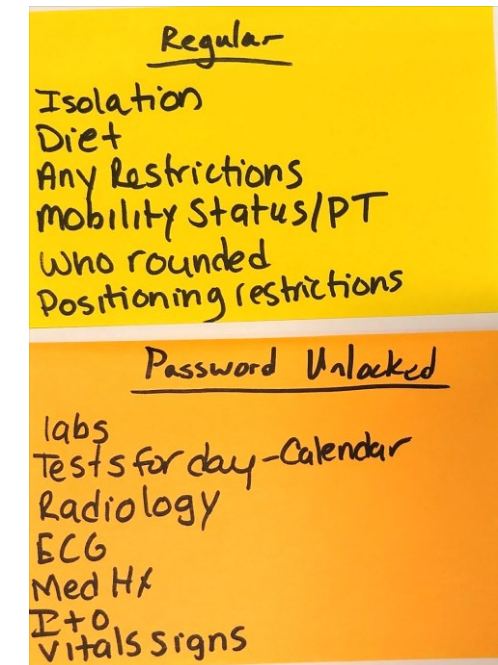 Regular
Isolation
Diet
Any Restrictions
Mobility Status/PT
Who rounded
Positioning restrictions
Password Unlocked
labs
Tests for day - Calendar
Radiology
ECG
Med Hx
I + O
Vitals signs